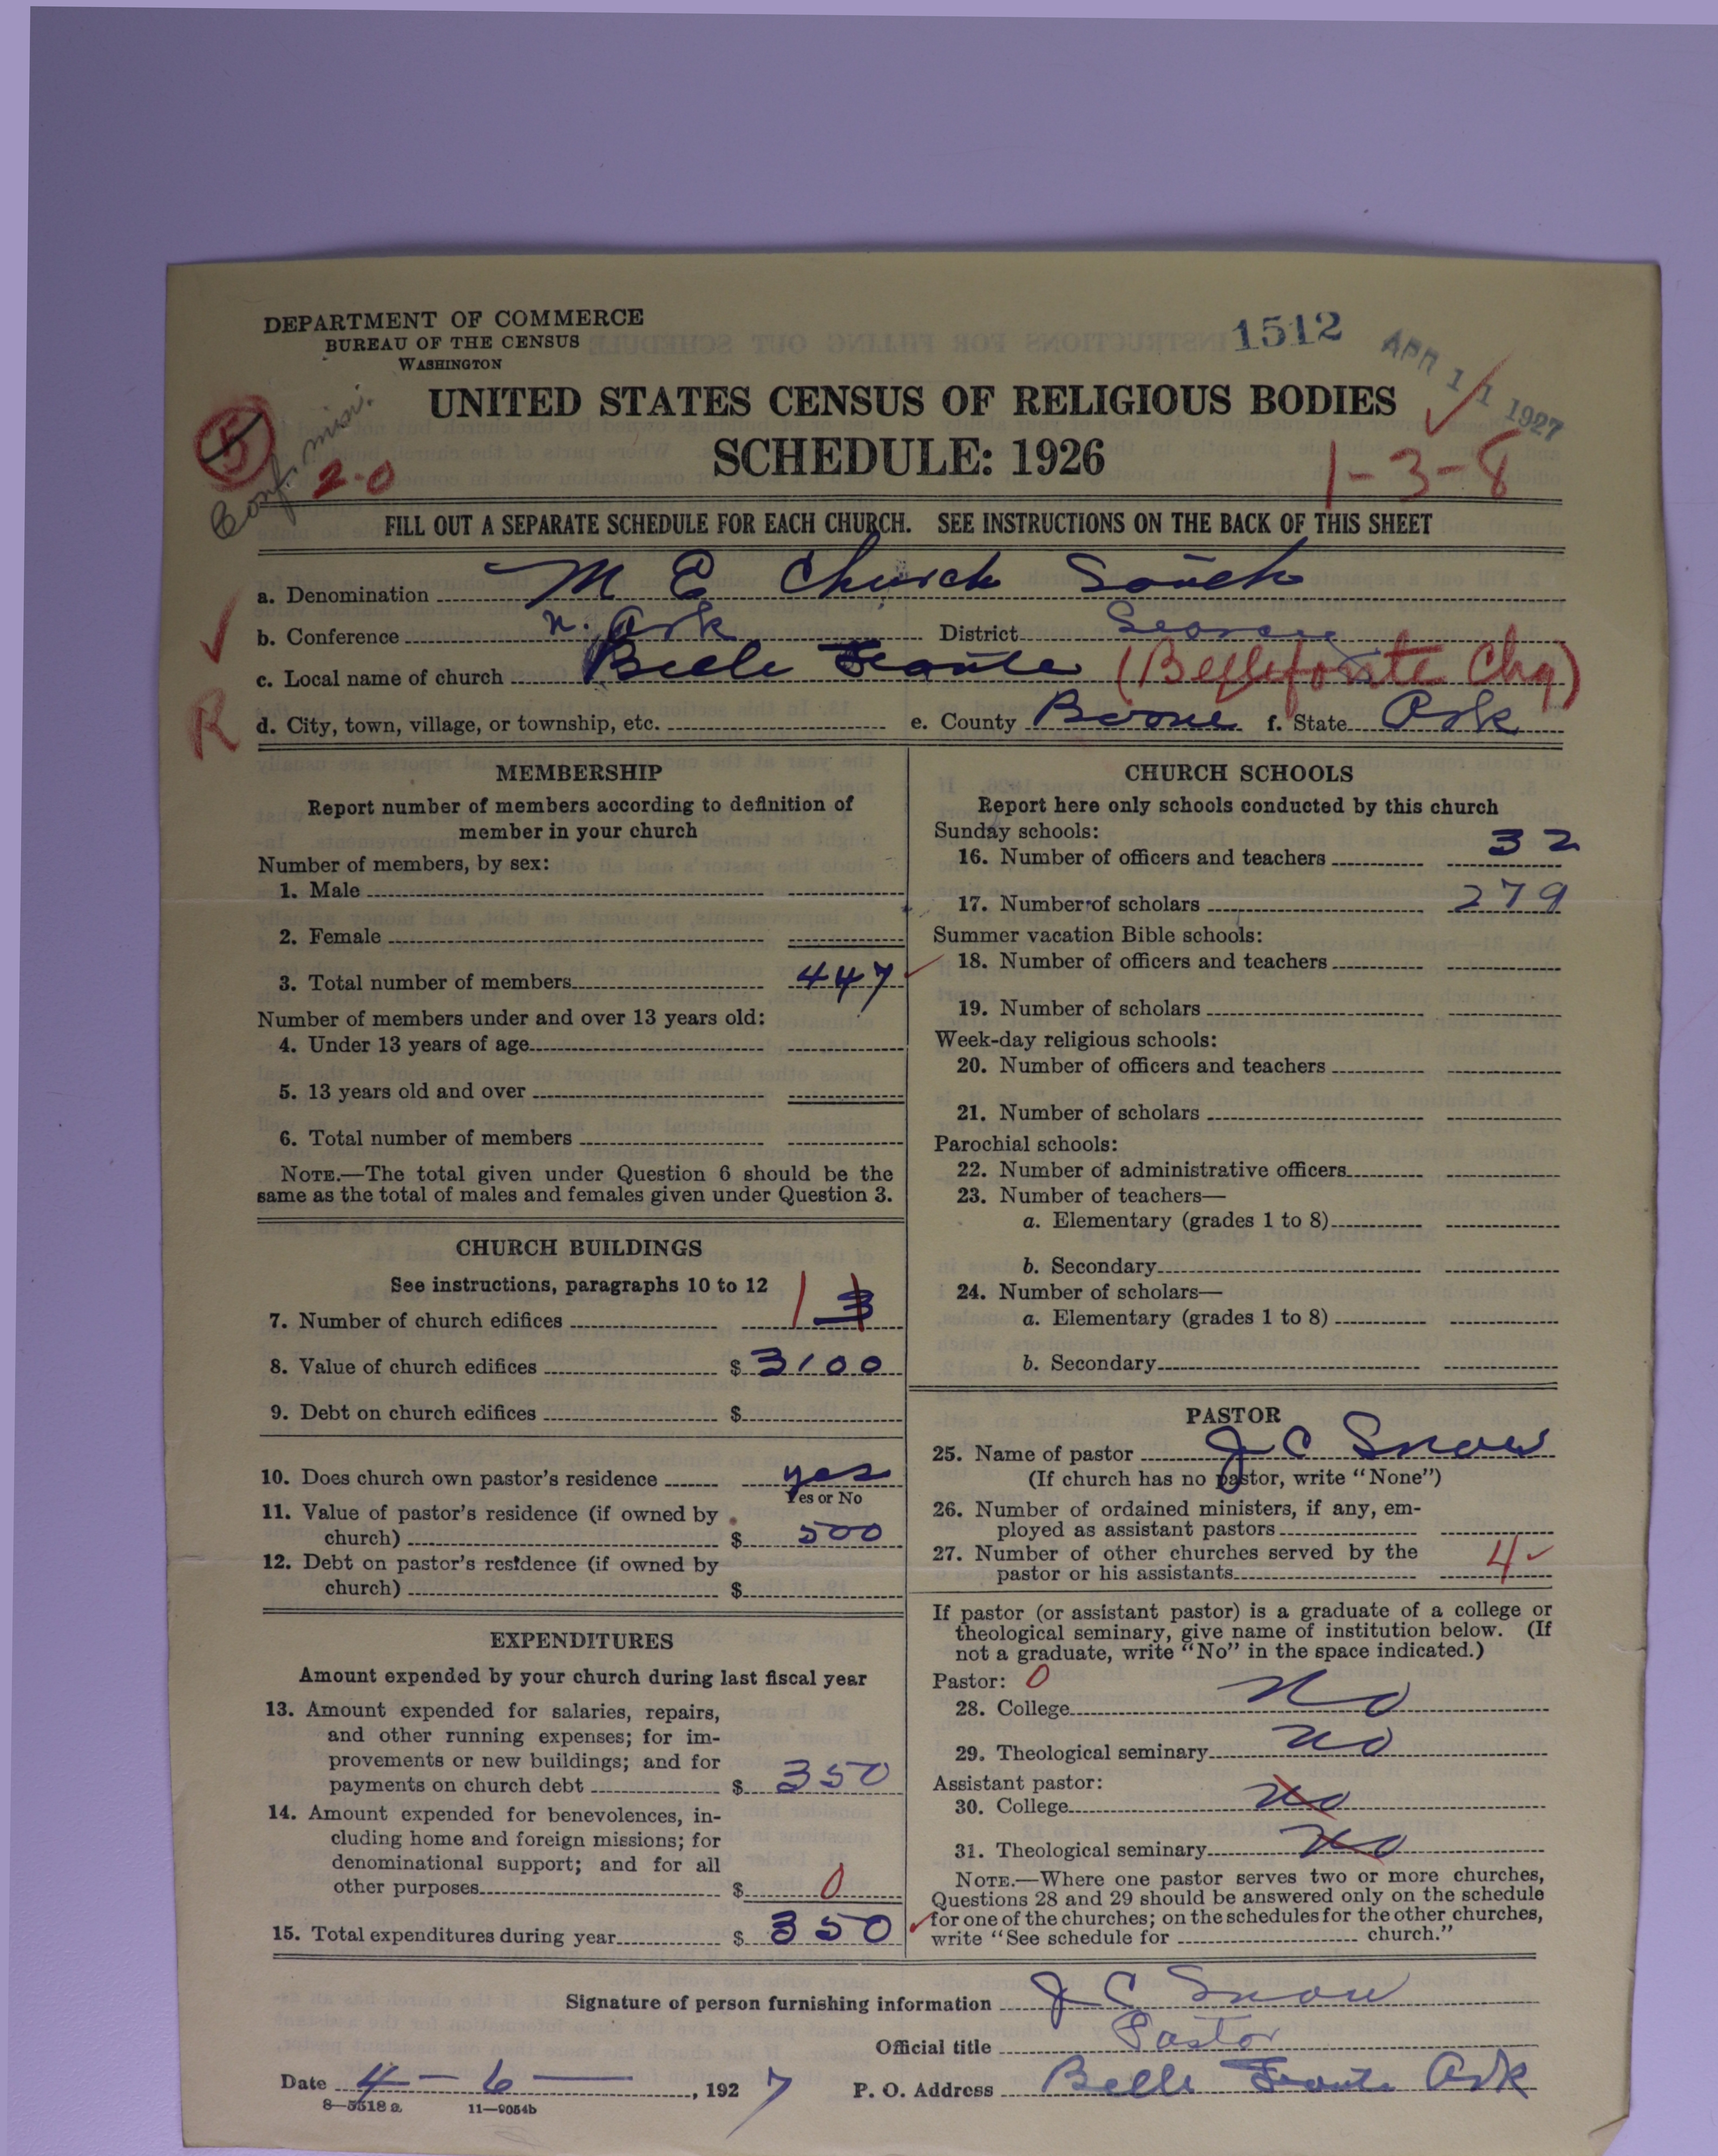 DEPARTMENT OF COMMERCE
BUREAU OF THE CENSUS
WASHINGTON
1512
APR 11 1927
UNITED STATES CENSUS OF RELIGIOUS BODIES
SCHEDULE: 1926
5
Conf. miss.
2-0
1-3-8
FILL OUT A SEPARATE SCHEDULE FOR EACH CHURCH. SEE INSTRUCTIONS ON THE BACK OF THIS SHEET
a. Denomination M E Church South
b. Conference N. Ark District Searcy
c. Local name of church Belle Fonte (Bellefonte Chg)
R
d. City, town, village, or township, etc. e. County Boone f. State Ark
MEMBERSHIP
Report number of members according to definition of
member in your church
Number of members, by sex:
1. Male
2. Female
3. Total number of members 447
Number of members under and over 13 years old:
4. Under 13 years of age
5. 13 years old and over
6. Total number of members
NOTE.—The total given under Question 6 should be the
same as the total of males and females given under Question 3.
CHURCH BUILDINGS
See instructions, paragraphs 10 to 12
7. Number of church edifices 1 3
8. Value of church edifices $ 3100
9. Debt on church edifices $
10. Does church own pastor's residence yes
Yes or No
11. Value of pastor's residence (if owned by
church) $ 500
12. Debt on pastor's residence (if owned by
church) $
EXPENDITURES
Amount expended by your church during last fiscal year
13. Amount expended for salaries, repairs,
and other running expenses; for im-
provements or new buildings; and for
payments on church debt $ 350
14. Amount expended for benevolences, in-
cluding home and foreign missions; for
denominational support; and for all
other purposes $ 0
15. Total expenditures during year $ 350
CHURCH SCHOOLS
Report here only schools conducted by this church
Sunday schools:
16. Number of officers and teachers 32
17. Number of scholars 279
Summer vacation Bible schools:
18. Number of officers and teachers
19. Number of scholars
Week-day religious schools:
20. Number of officers and teachers
21. Number of scholars
Parochial schools:
22. Number of administrative officers
23. Number of teachers—
a. Elementary (grades 1 to 8)
b. Secondary
24. Number of scholars—
a. Elementary (grades 1 to 8)
b. Secondary
PASTOR
25. Name of pastor J C Snow
(If church has no pastor, write "None")
26. Number of ordained ministers, if any, em-
ployed as assistant pastors
27. Number of other churches served by the
pastor or his assistants 4
If pastor (or assistant pastor) is a graduate of a college or
theological seminary, give name of institution below. (If
not a graduate, write "No" in the space indicated.)
Pastor: 0
28. College no
29. Theological seminary no
Assistant pastor:
30. College no
31. Theological seminary no
NOTE.—Where one pastor serves two or more churches,
Questions 28 and 29 should be answered only on the schedule
for one of the churches; on the schedules for the other churches,
write "See schedule for church."
Signature of person furnishing information J C Snow
Official title Pastor
Date 4-6-, 1927 P. O. Address Belle Fonte Ark
8-5518 a 11-9054b